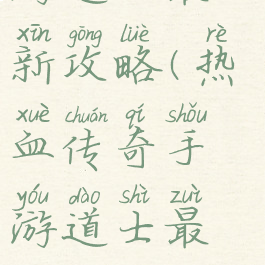 xīn gōng lüè rè
新攻略(热
xuè chuán qí shǒu
血传奇手
yóu dào shì zuì
游道士最